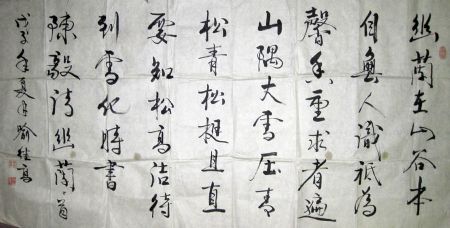 幽蘭在山谷本
自無人識祗為
馨香重求者遍
山隅大雪壓青
松青松挺且直
要知松高洁待
到雪化時書
陳毅诗幽蘭首
戊子年夏月